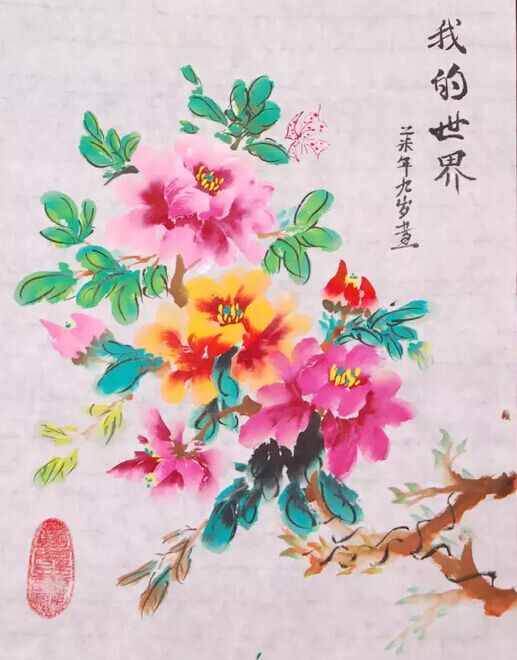 我的世界
年九岁画